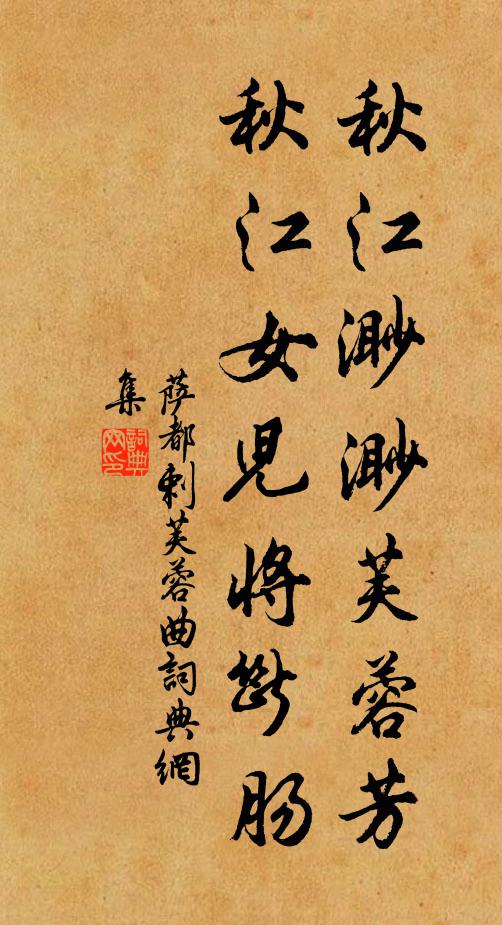 秋江渺渺芙蓉芳
秋江女兒將斷腸
萨都剌芙蓉曲詞典網
集
詞典
网印